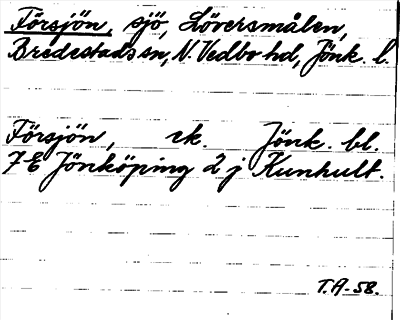 Försjön, sjö, Löversmålen,
Bredestads sn, N. Vedbo hd, Jönk. l.
Försjön, ek. Jönk. bl.
7 E Jönköping 2 j Kunhult.
T.A-58.